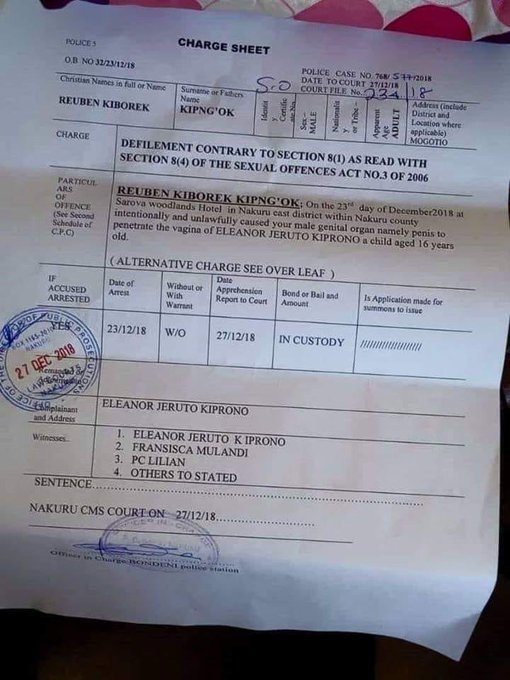 POLICE 5
CHARGE SHEET
O.B NO 32/23/12/18
POLICE CASE NO. 768/577/2018
DATE TO COURT 27/12/18
COURT FILE No. 234/18
Christian Names in full or Name
Surname or Fathers Name
S.O
Identity Certificate No.
Sex – MALE
Nationality or Tribe –
Apparent Age ADULT
Address (include District and Location where applicable)
REUBEN KIBOREK
KIPNG'OK
MOGOTIO
CHARGE
DEFILEMENT CONTRARY TO SECTION 8(1) AS READ WITH
SECTION 8(4) OF THE SEXUAL OFFENCES ACT NO.3 OF 2006
PARTICUL
ARS
OF
OFFENCE
(See Second
Schedule of
C.P.C)
REUBEN KIBOREK KIPNG'OK: On the 23rd day of December2018 at
Sarova woodlands Hotel in Nakuru east district within Nakuru county
intentionally and unlawfully caused your male genital organ namely penis to
penetrate the vagina of ELEANOR JERUTO KIPRONO a child aged 16 years
old.
( ALTERNATIVE CHARGE SEE OVER LEAF )
IF
ACCUSED
ARRESTED
Date of Arrest
Without or With Warrant
Date Apprehension Report to Court
Bond or Bail and Amount
Is Application made for summons to issue
YES
23/12/18
W/O
27/12/18
IN CUSTODY
////////////////////
OFFICE OF THE DIRECTOR OF PUBLIC PROSECUTIONS
27 DEC 2018
NAKURU
Complainant
and Address
ELEANOR JERUTO KIPRONO
Witnesses..
1. ELEANOR JERUTO K IPRONO
2. FRANSISCA MULANDI
3. PC LILIAN
4. OTHERS TO STATED
SENTENCE
NAKURU CMS COURT ON 27/12/18
Officer in Charge BONDENI police station